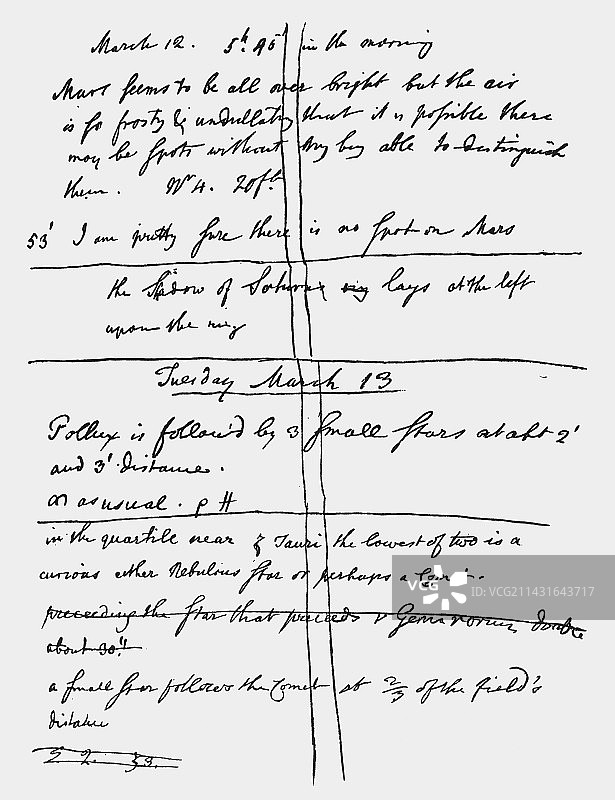 March 12. 5h 45' in the morning
Mars seems to be all over bright but the air
is so frosty & undullating that it is possible there
may be spots without my being able to distinguish
them. 20ft
53' I am pretty sure there is no spot on Mars
the Shadow of Saturn lays at the left
upon the ring
Tuesday March 13
Pollux is follow'd by 3 small stars at abt 2'
and 3' distance.
as usual. p #
in the quartile near ζ Tauri the lowest of two is a
curious either Nebulous star or perhaps a Comet.
preceeding the star that preceeds Geminorum double
about 30"
a small star follows the Comet at 2/3 of the field's
distance
VCG
VEER.COM
ID:VCG211431643717